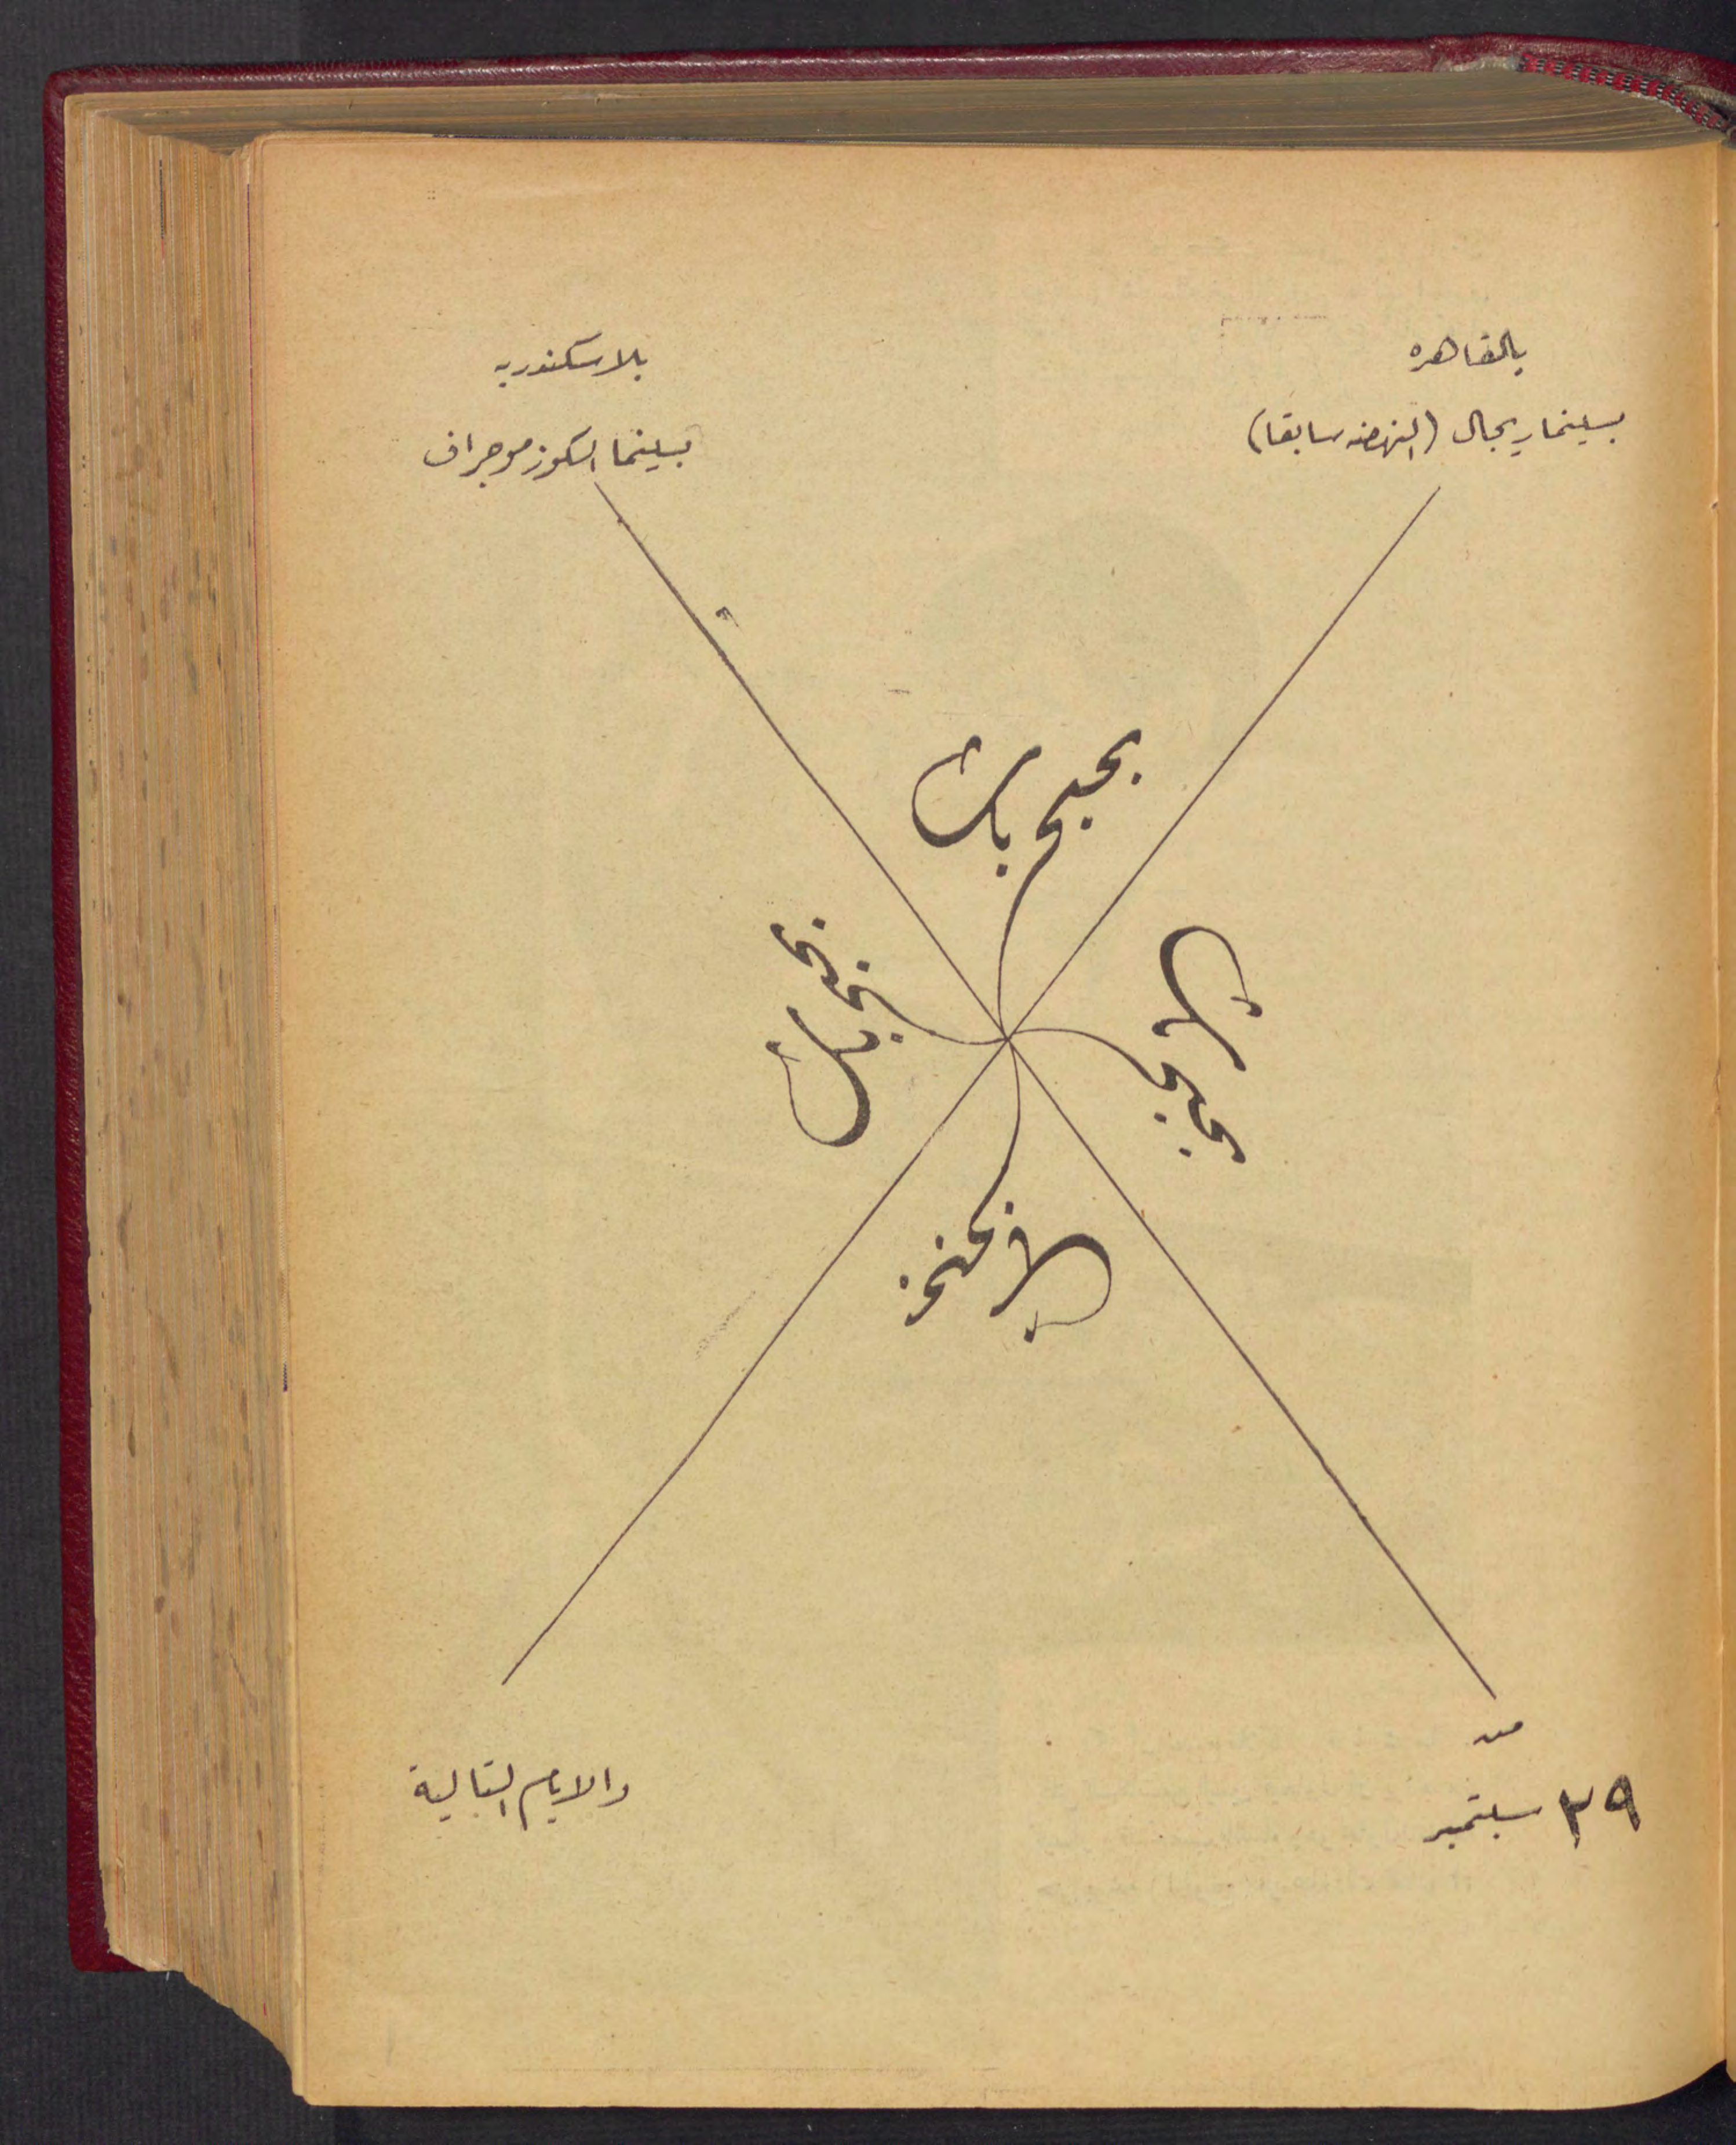 بالقاهره
بسينما ريجال (النهضه سابقا)
بالاسكندريه
بسينما الكوزموجراف
بحبح بك
بحبح بك
بحبح بك
بحبح بك
من
٢٩ سبتمبر
والايام التالية